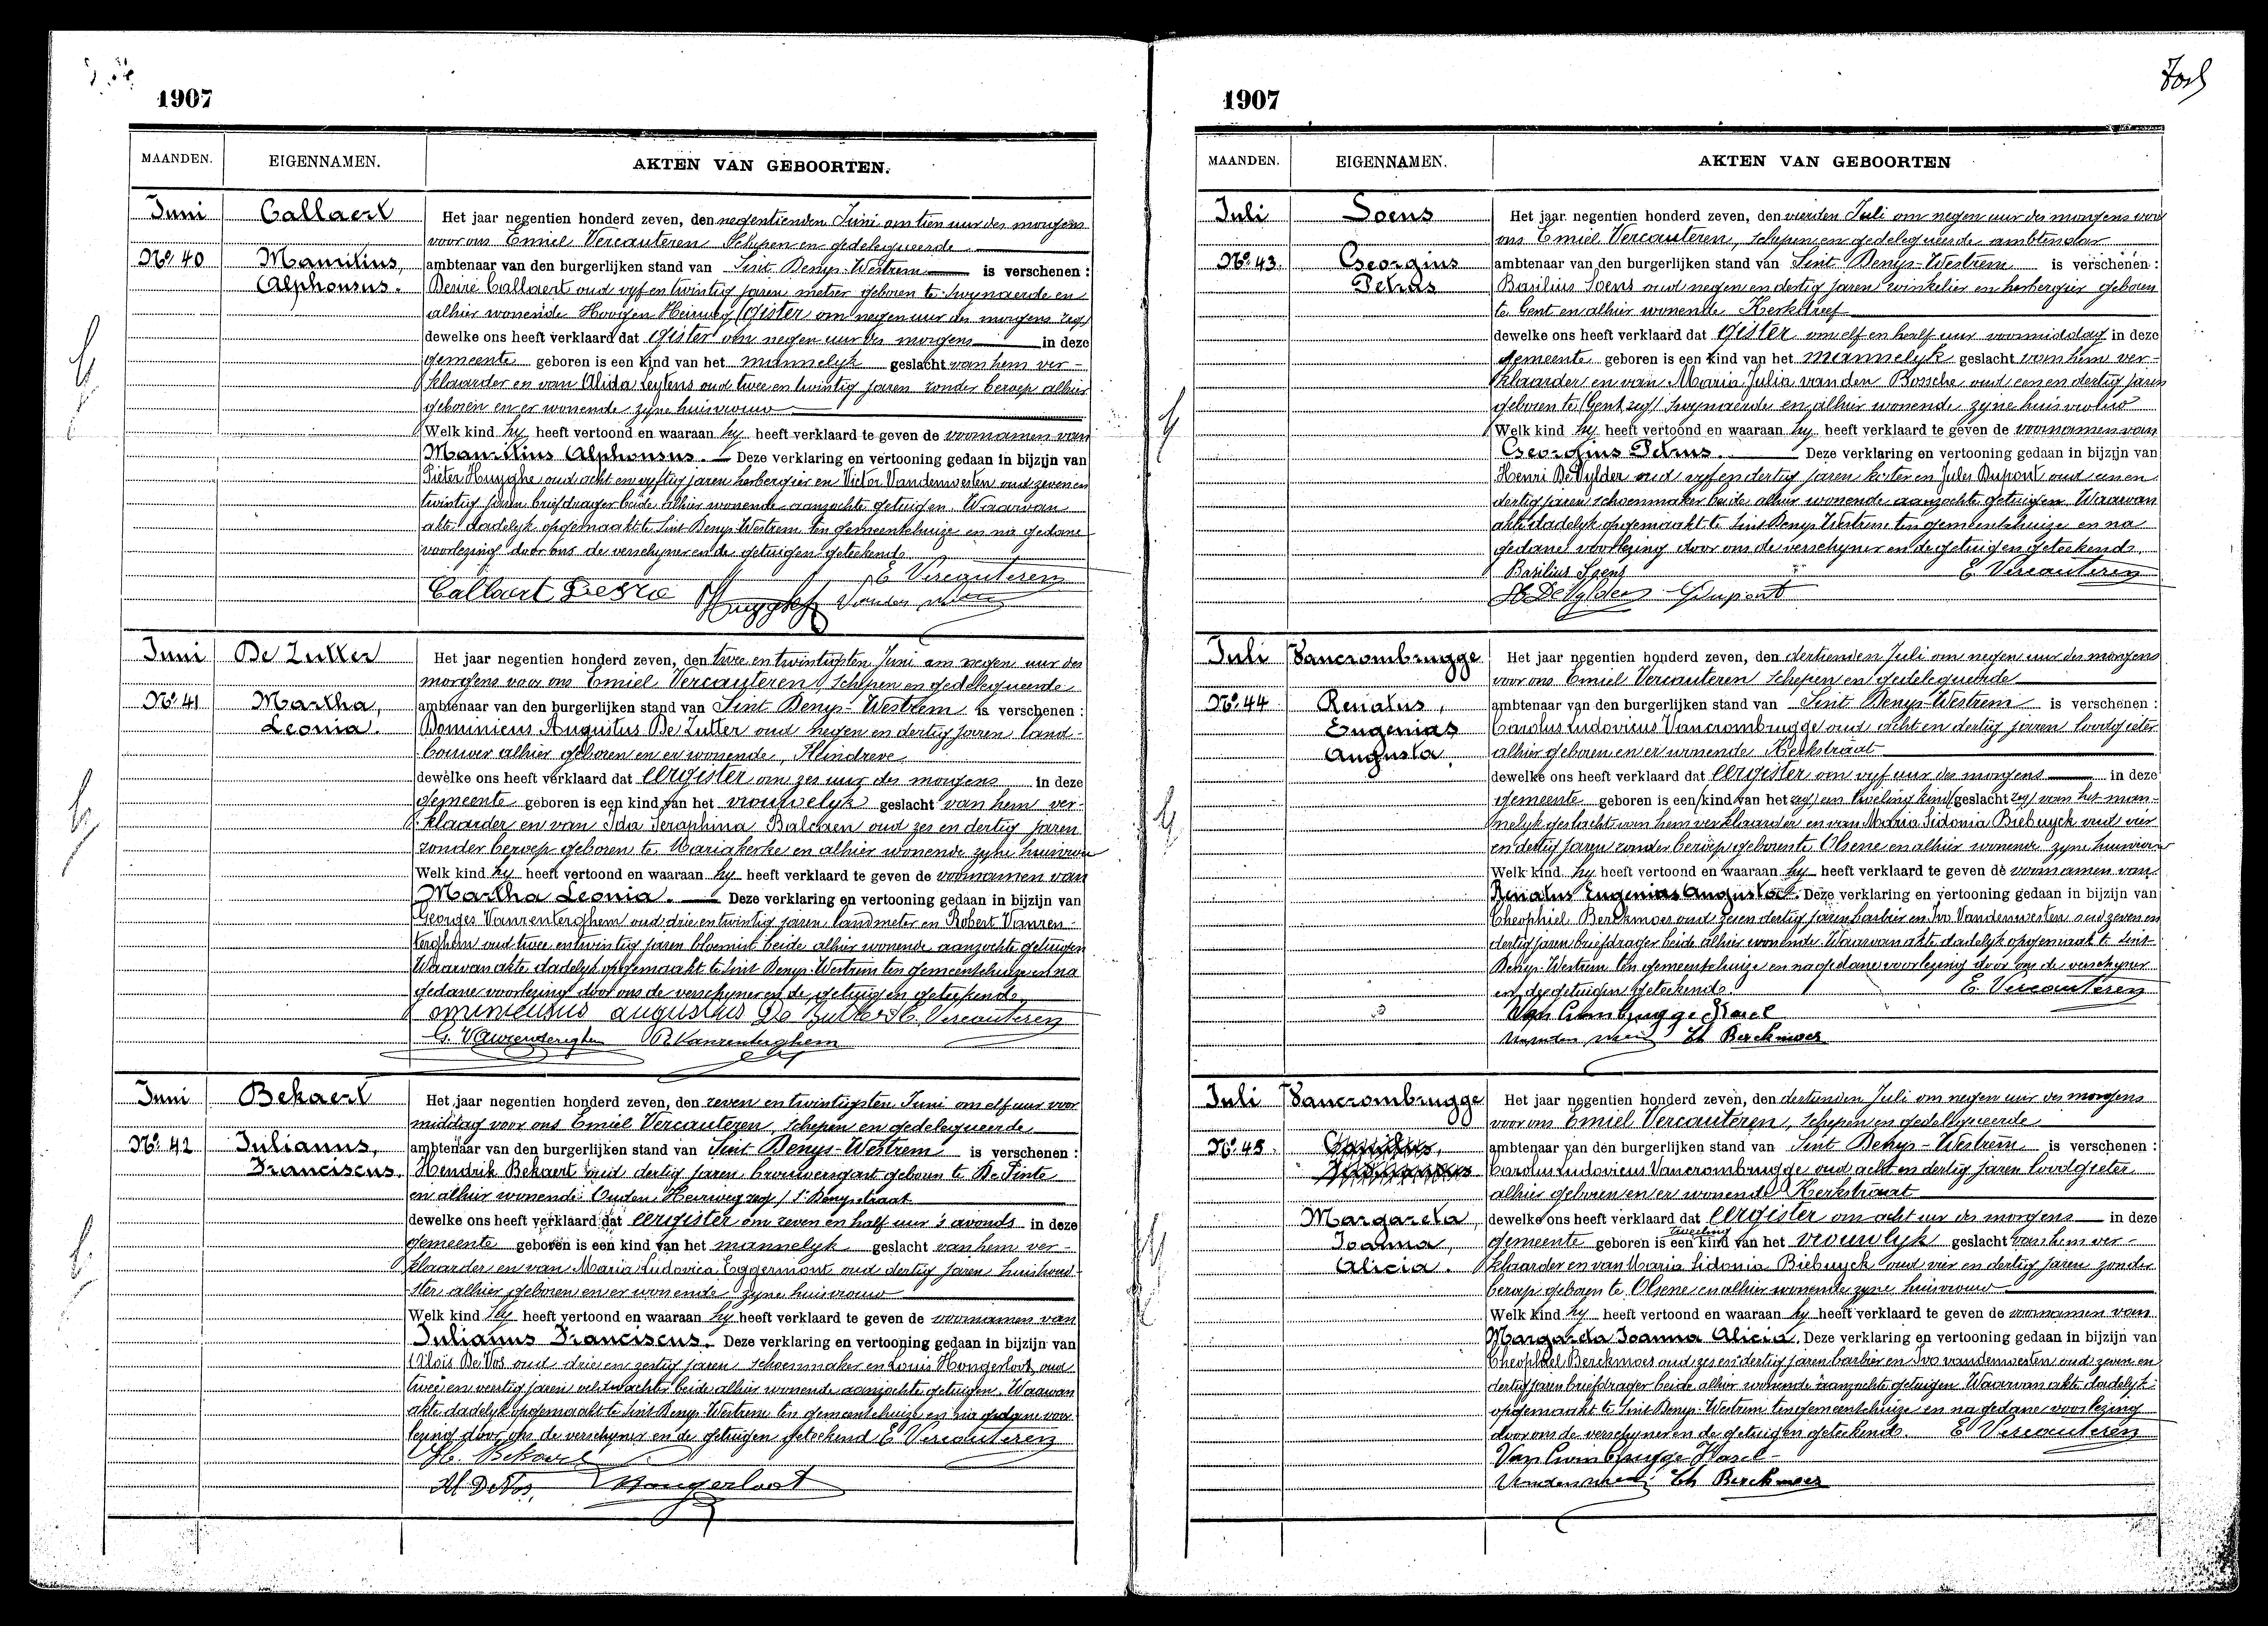 1907
MAANDEN. EIGENNAMEN. AKTEN VAN GEBOORTEN.
Juni Callaert
Het jaar negentien honderd zeven, den negentienden Juni om tien uur des morgens
voor ons Emiel Vercauteren Schepen en gedelegueerde
No. 40 Mauritius, ambtenaar van den burgerlijken stand van Sint Denys-Westrem is verschenen :
Alphonsus. Desiré Callaert oud vyf en twintig jaren metser geboren te Swynaerde en
alhier wonende Hoogen Heirweg (gister om negen uur des morgens zeg)
dewelke ons heeft verklaard dat gister om negen uur des morgens in deze
gemeente geboren is een kind van het mannelyk geslacht van hem ver-
klaarder en van Alida Leytens oud twee en twintig jaren zonder beroep alhier
geboren en er wonende zyne huisvrouw
Welk kind hy heeft vertoond en waaraan hy heeft verklaard te geven de voornamen van
Mauritius Alphonsus. Deze verklaring en vertooning gedaan in bijzijn van
Pieter Huyghe oud acht en vyftig jaren herbergier en Victor Vandenwesten oud zeven en
twintig jaren briefdrager beide alhier wonende aanzochte getuigen. Waarvan
akte dadelyk opgemaakt te Sint Denys-Westrem ten gemeentehuize en na gedane
voorlezing door ons de verschyner en de getuigen geteekend.
E Vercauteren
Callaert Desire Huyghe
Juni De Zutter
Het jaar negentien honderd zeven, den twee en twintigsten Juni om negen uur des
morgens voor ons Emiel Vercauteren, Schepen en gedelegueerde
No. 41 Martha, ambtenaar van den burgerlijken stand van Sint Denys-Westrem is verschenen :
Leonia. Dominicus Augustus De Zutter oud negen en dertig jaren land-
bouwer alhier geboren en er wonende, Kleindreve
dewelke ons heeft verklaard dat eergister om zes uur des morgens in deze
gemeente geboren is een kind van het vrouwelyk geslacht van hem ver-
klaarder en van Ida Seraphina Balcaen oud zes en dertig jaren
zonder beroep geboren te Mariakerke en alhier wonende zyne huisvrouw
Welk kind hy heeft vertoond en waaraan hy heeft verklaard te geven de voornamen van
Martha Leonia. Deze verklaring en vertooning gedaan in bijzijn van
Georges Vanrenterghem oud drie en twintig jaren landmeter en Robert Vanren-
terghem oud twee en twintig jaren bloemist beide alhier wonende aanzochte getuigen
Waarvan akte dadelyk opgemaakt te Sint Denys-Westrem ten gemeentehuize en na
gedane voorlezing door ons de verschyner en de getuigen geteekend.
ominicus augustus De Zutter E. Vercauteren
G. Vanrenterghem R. Vanrenterghem
Juni Bekaert
Het jaar negentien honderd zeven, den zeven en twintigsten Juni om elf uur voor
middag voor ons Emiel Vercauteren, Schepen en gedelegueerde
No. 42 Julianus, ambtenaar van den burgerlijken stand van Sint Denys-Westrem is verschenen :
Franciscus. Hendrik Bekaert oud dertig jaren brouwersgast geboren te De Pinte
en alhier wonende Ouden Heirweg zeg / St Denysstraat
dewelke ons heeft verklaard dat eergister om zeven en half uur 's avonds in deze
gemeente geboren is een kind van het mannelyk geslacht van hem ver-
klaarder en van Maria Ludovica Eggermont oud dertig jaren huishoud-
ster alhier geboren en er wonende zyne huisvrouw
Welk kind hy heeft vertoond en waaraan hy heeft verklaard te geven de voornamen van
Julianus Franciscus. Deze verklaring en vertooning gedaan in bijzijn van
Aloïs De Vos oud drie en zestig jaren schoenmaker en Louis Hongerloot, oud
twee en veertig jaren veldwachter beide alhier wonende aanzochte getuigen. Waarvan
akte dadelyk opgemaakt te Sint Denys-Westrem ten gemeentehuize en na gedane voor
lezing door ons de verschyner en de getuigen geteekend E Vercauteren
H. Bekaert
Al DeVos, Hongerloot
1907
MAANDEN. EIGENNAMEN. AKTEN VAN GEBOORTEN
Juli Soens
Het jaar negentien honderd zeven, den vierden Juli om negen uur des morgens voor
ons Emiel Vercauteren, schepen en gedelegueerde ambtenaar
No. 43. Georgius ambtenaar van den burgerlijken stand van Sint Denys-Westrem is verschenen :
Petrus Basilius Soens oud negen en dertig jaren winkelier en herbergier geboren
te Gent en alhier wonende Kerkdreef
dewelke ons heeft verklaard dat gister om elf en half uur voormiddag in deze
gemeente geboren is een kind van het mannelyk geslacht van hem ver-
klaarder en van Maria Julia van den Bossche oud een en dertig jaren
geboren te (Gent zeg) Swynaerde en alhier wonende zyne huisvrouw
Welk kind hy heeft vertoond en waaraan hy heeft verklaard te geven de voornamen van
Georgius Petrus. Deze verklaring en vertooning gedaan in bijzijn van
Henri DeVylder oud vyf en dertig jaren koster en Jules Dupont oud een en
dertig jaren schoenmaker beide alhier wonende aanzochte getuigen. Waarvan
akte dadelyk opgemaakt te Sint Denys-Westrem ten gemeentehuize en na
gedane voorlezing door ons de verschyner en de getuigen geteekend.
Basilius Soens E. Vercauteren
H. De Vylder Dupont
Juli Vancrombrugge
Het jaar negentien honderd zeven, den dertienden Juli om negen uur des morgens
voor ons Emiel Vercauteren schepen en gedelegueerde
No. 44 Renatus, ambtenaar van den burgerlijken stand van Sint Denys-Westrem is verschenen :
Eugenias Carolus Ludovicus Vancrombrugge oud acht en dertig jaren loodgieter
Augusta. alhier geboren en er wonende Kerkstraat
dewelke ons heeft verklaard dat eergister om vyf uur des morgens in deze
gemeente geboren is een (kind van het zeg) een tweeling kind (geslacht zeg) van het man-
nelyk geslacht van hem verklaarder en van Maria Sidonia Biebuyck oud vier
en dertig jaren zonder beroep geboren te Olsene en alhier wonende zyne huisvrouw
Welk kind hy heeft vertoond en waaraan hy heeft verklaard te geven de voornamen van
Renatus Eugenias Augusta. Deze verklaring en vertooning gedaan in bijzijn van
Theophiel Berckmoes oud zes en dertig jaren barbier en Ivo Vandenwesten oud zeven en
dertig jaren briefdrager beide alhier wonende. Waarvan akte dadelyk opgemaakt te Sint-
Denys-Westrem ten gemeentehuize en na gedane voorlezing door ons de verschyner
en de getuigen geteekend. E. Vercauteren
Van Crombrugge Karel
Th Berckmoes
Juli Vancrombrugge
Het jaar negentien honderd zeven, den dertienden Juli om negen uur des morgens
voor ons Emiel Vercauteren, schepen en gedelegueerde
No. 45. ambtenaar van den burgerlijken stand van Sint Denys-Westrem is verschenen :
Carolus Ludovicus Vancrombrugge oud acht en dertig jaren loodgieter
alhier geboren en er wonende Kerkstraat
Margareta, dewelke ons heeft verklaard dat eergister om acht uur des morgens in deze
tweeling
Joanna, gemeente geboren is een kind van het vrouwlyk geslacht van hem ver-
Alicia. klaarder en van Maria Sidonia Biebuyck oud vier en dertig jaren zonder
beroep geboren te Olsene en alhier wonende zyne huisvrouw
Welk kind hy heeft vertoond en waaraan hy heeft verklaard te geven de voornamen van
Margareta Joanna Alicia. Deze verklaring en vertooning gedaan in bijzijn van
Theophiel Berckmoes oud zes en dertig jaren barbier en Ivo vandenwesten oud zeven en
dertig jaren briefdrager beide alhier wonende aanzochte getuigen Waarvan akte dadelyk
opgemaakt te Sint Denys-Westrem ten gemeentehuize en na gedane voorlezing
door ons de verschyner en de getuigen geteekend. E Vercauteren
Van Crombrugge Karel
Th Berckmoes